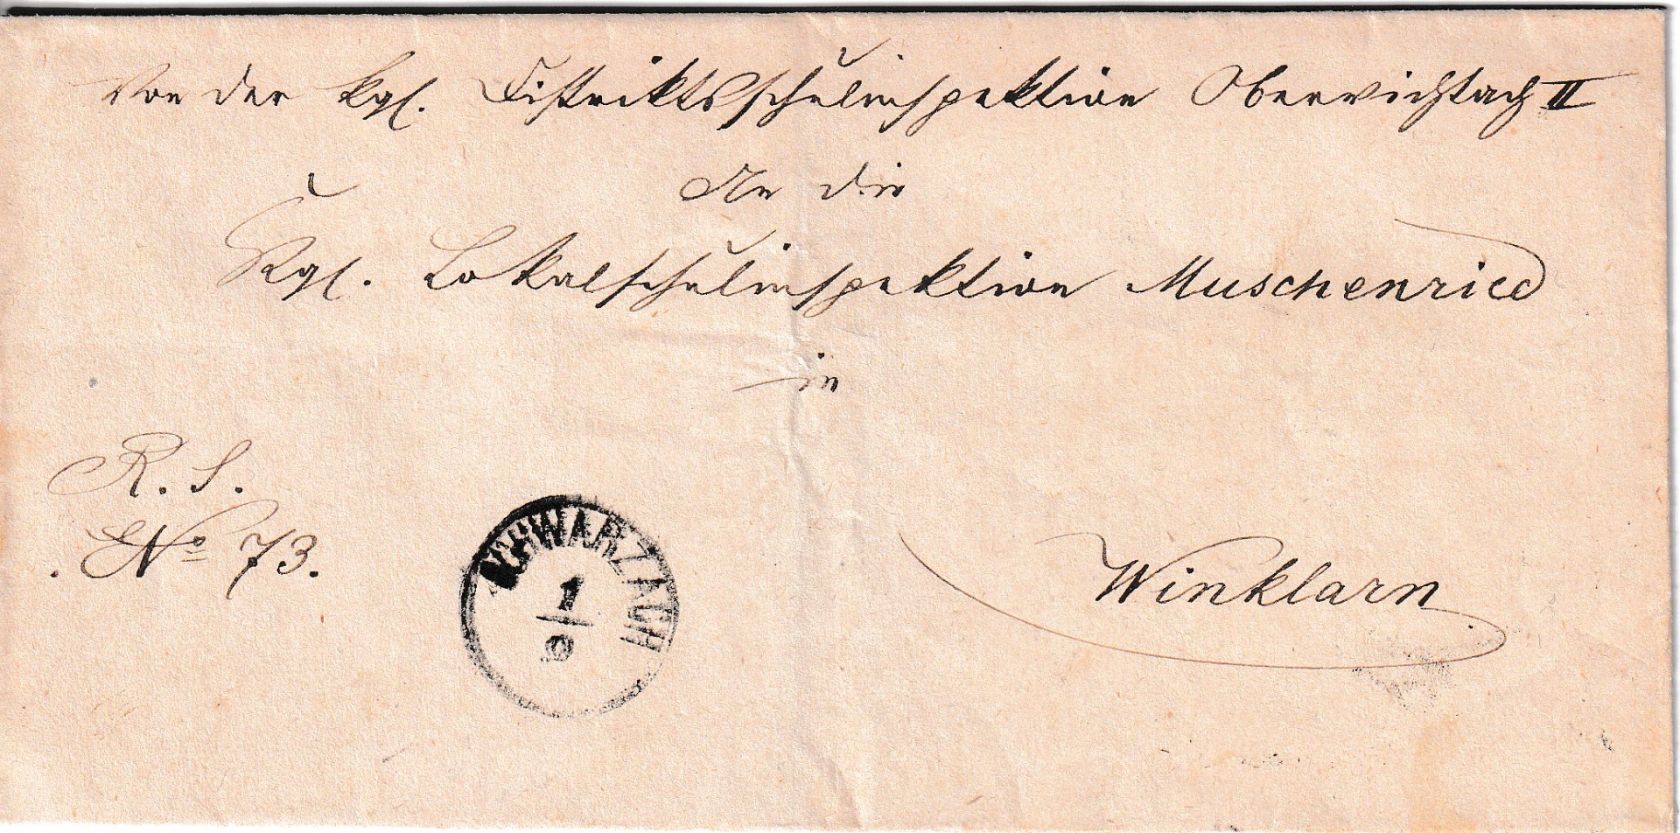 Von der kgl. Distriktsschulinspektion Oberviechtach II
An die
Kgl. Lokalschulinspektion Muschenried
in
R. S.
No 73.
SCHWARZACH
1
9
Winklarn